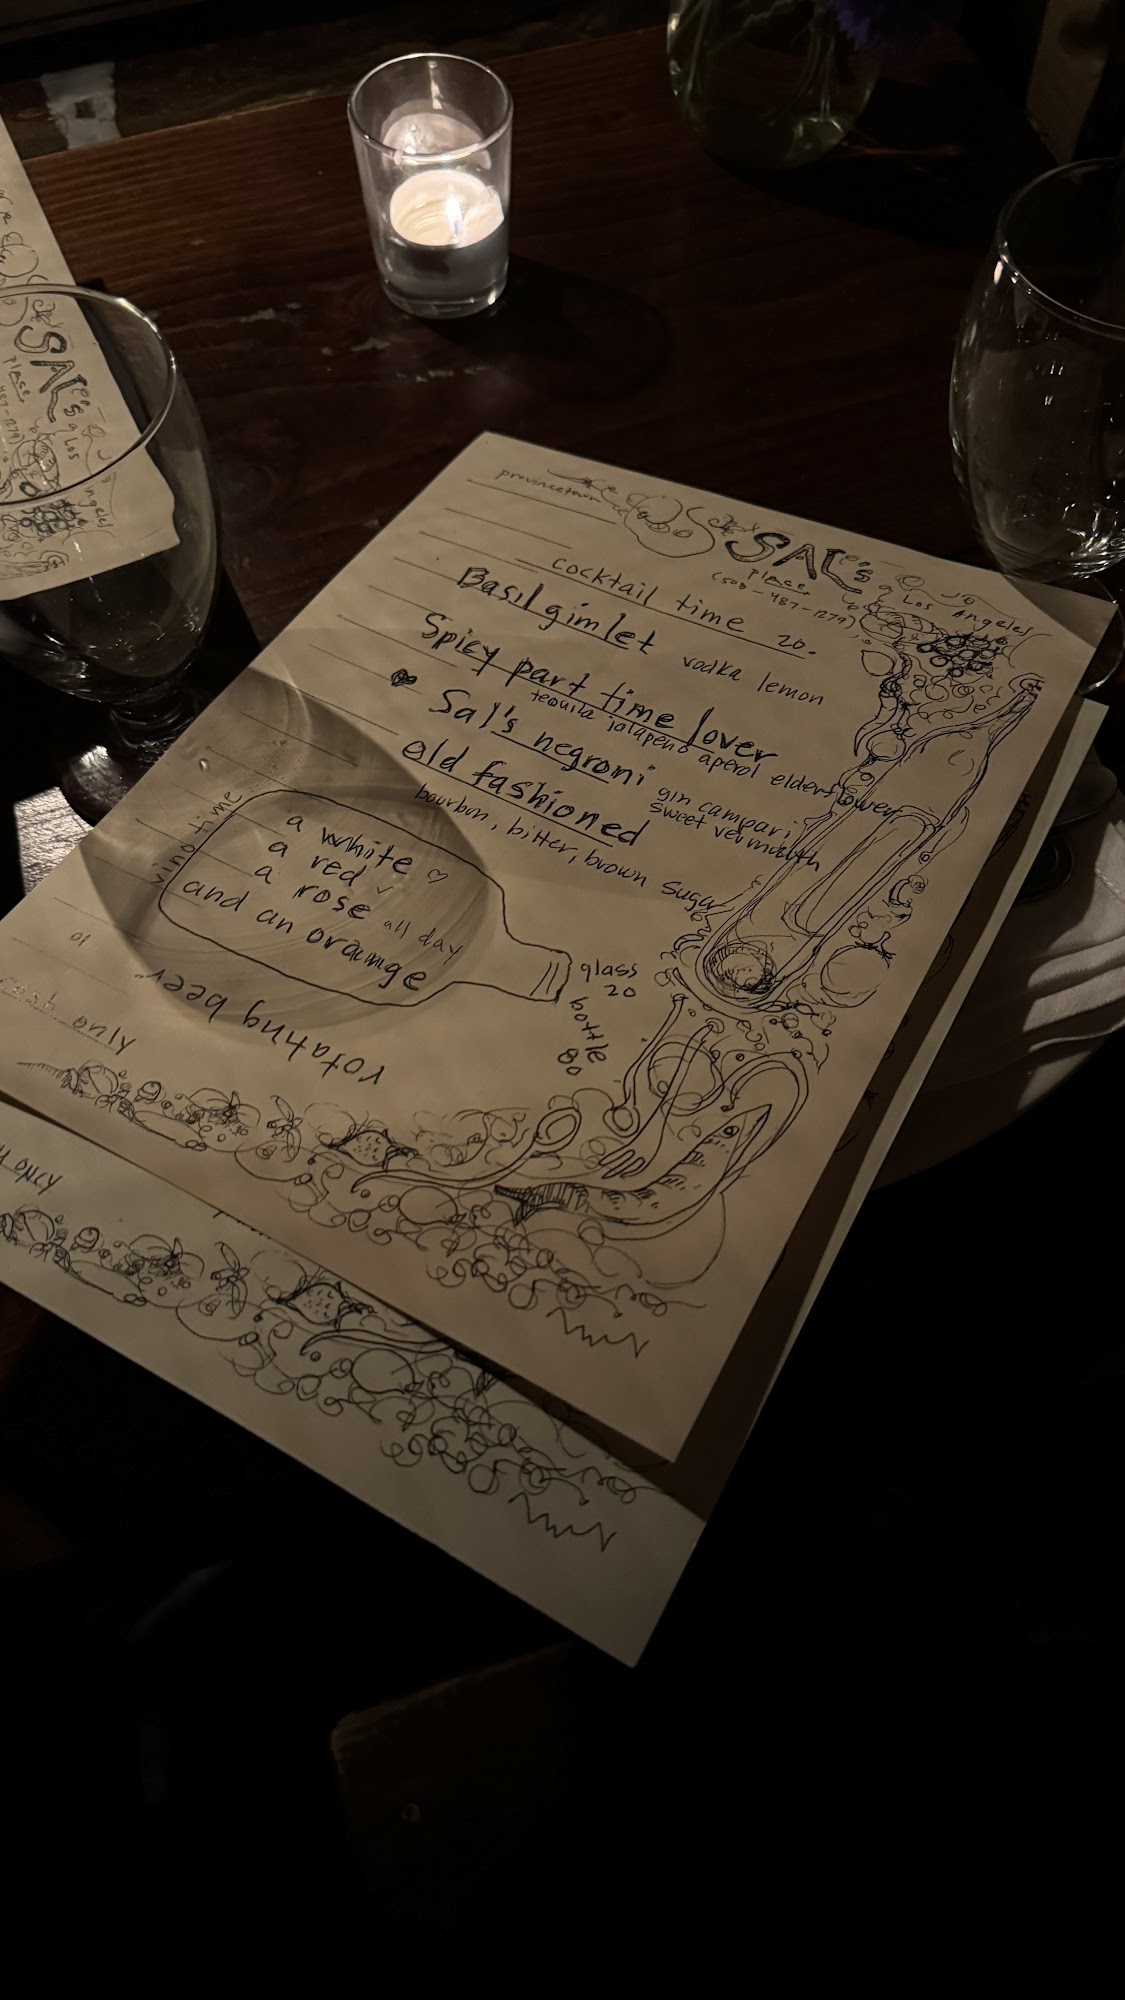 provincetown
SAL's
Place
a Los Angeles
(508-487-1279)
cocktail time 20.
Basil gimlet vodka lemon
Spicy part time lover
tequila jalapeño aperol elderflower
Sal's negroni gin campari
sweet vermouth
old fashioned
bourbon, bitter, brown sugar
vino time
a white
a red
a rose all day
and an orange
glass
20
bottle
80
rotating beer
10
cash only
SAL's
Place
a Los
Angeles
only